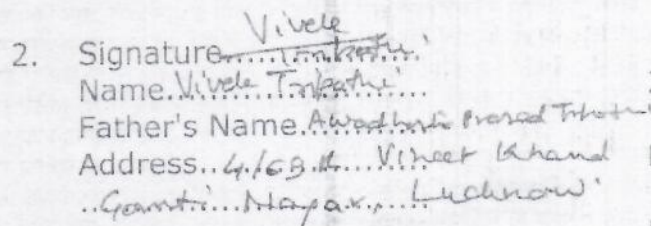 Vivek
2. Signature...Tripathi
Name.Vivek Tripathi
Father's Name.Awadhesh Prasad Tripathi
Address..4/69 Vineet Khand
..Gomti...Nagar., Lucknow